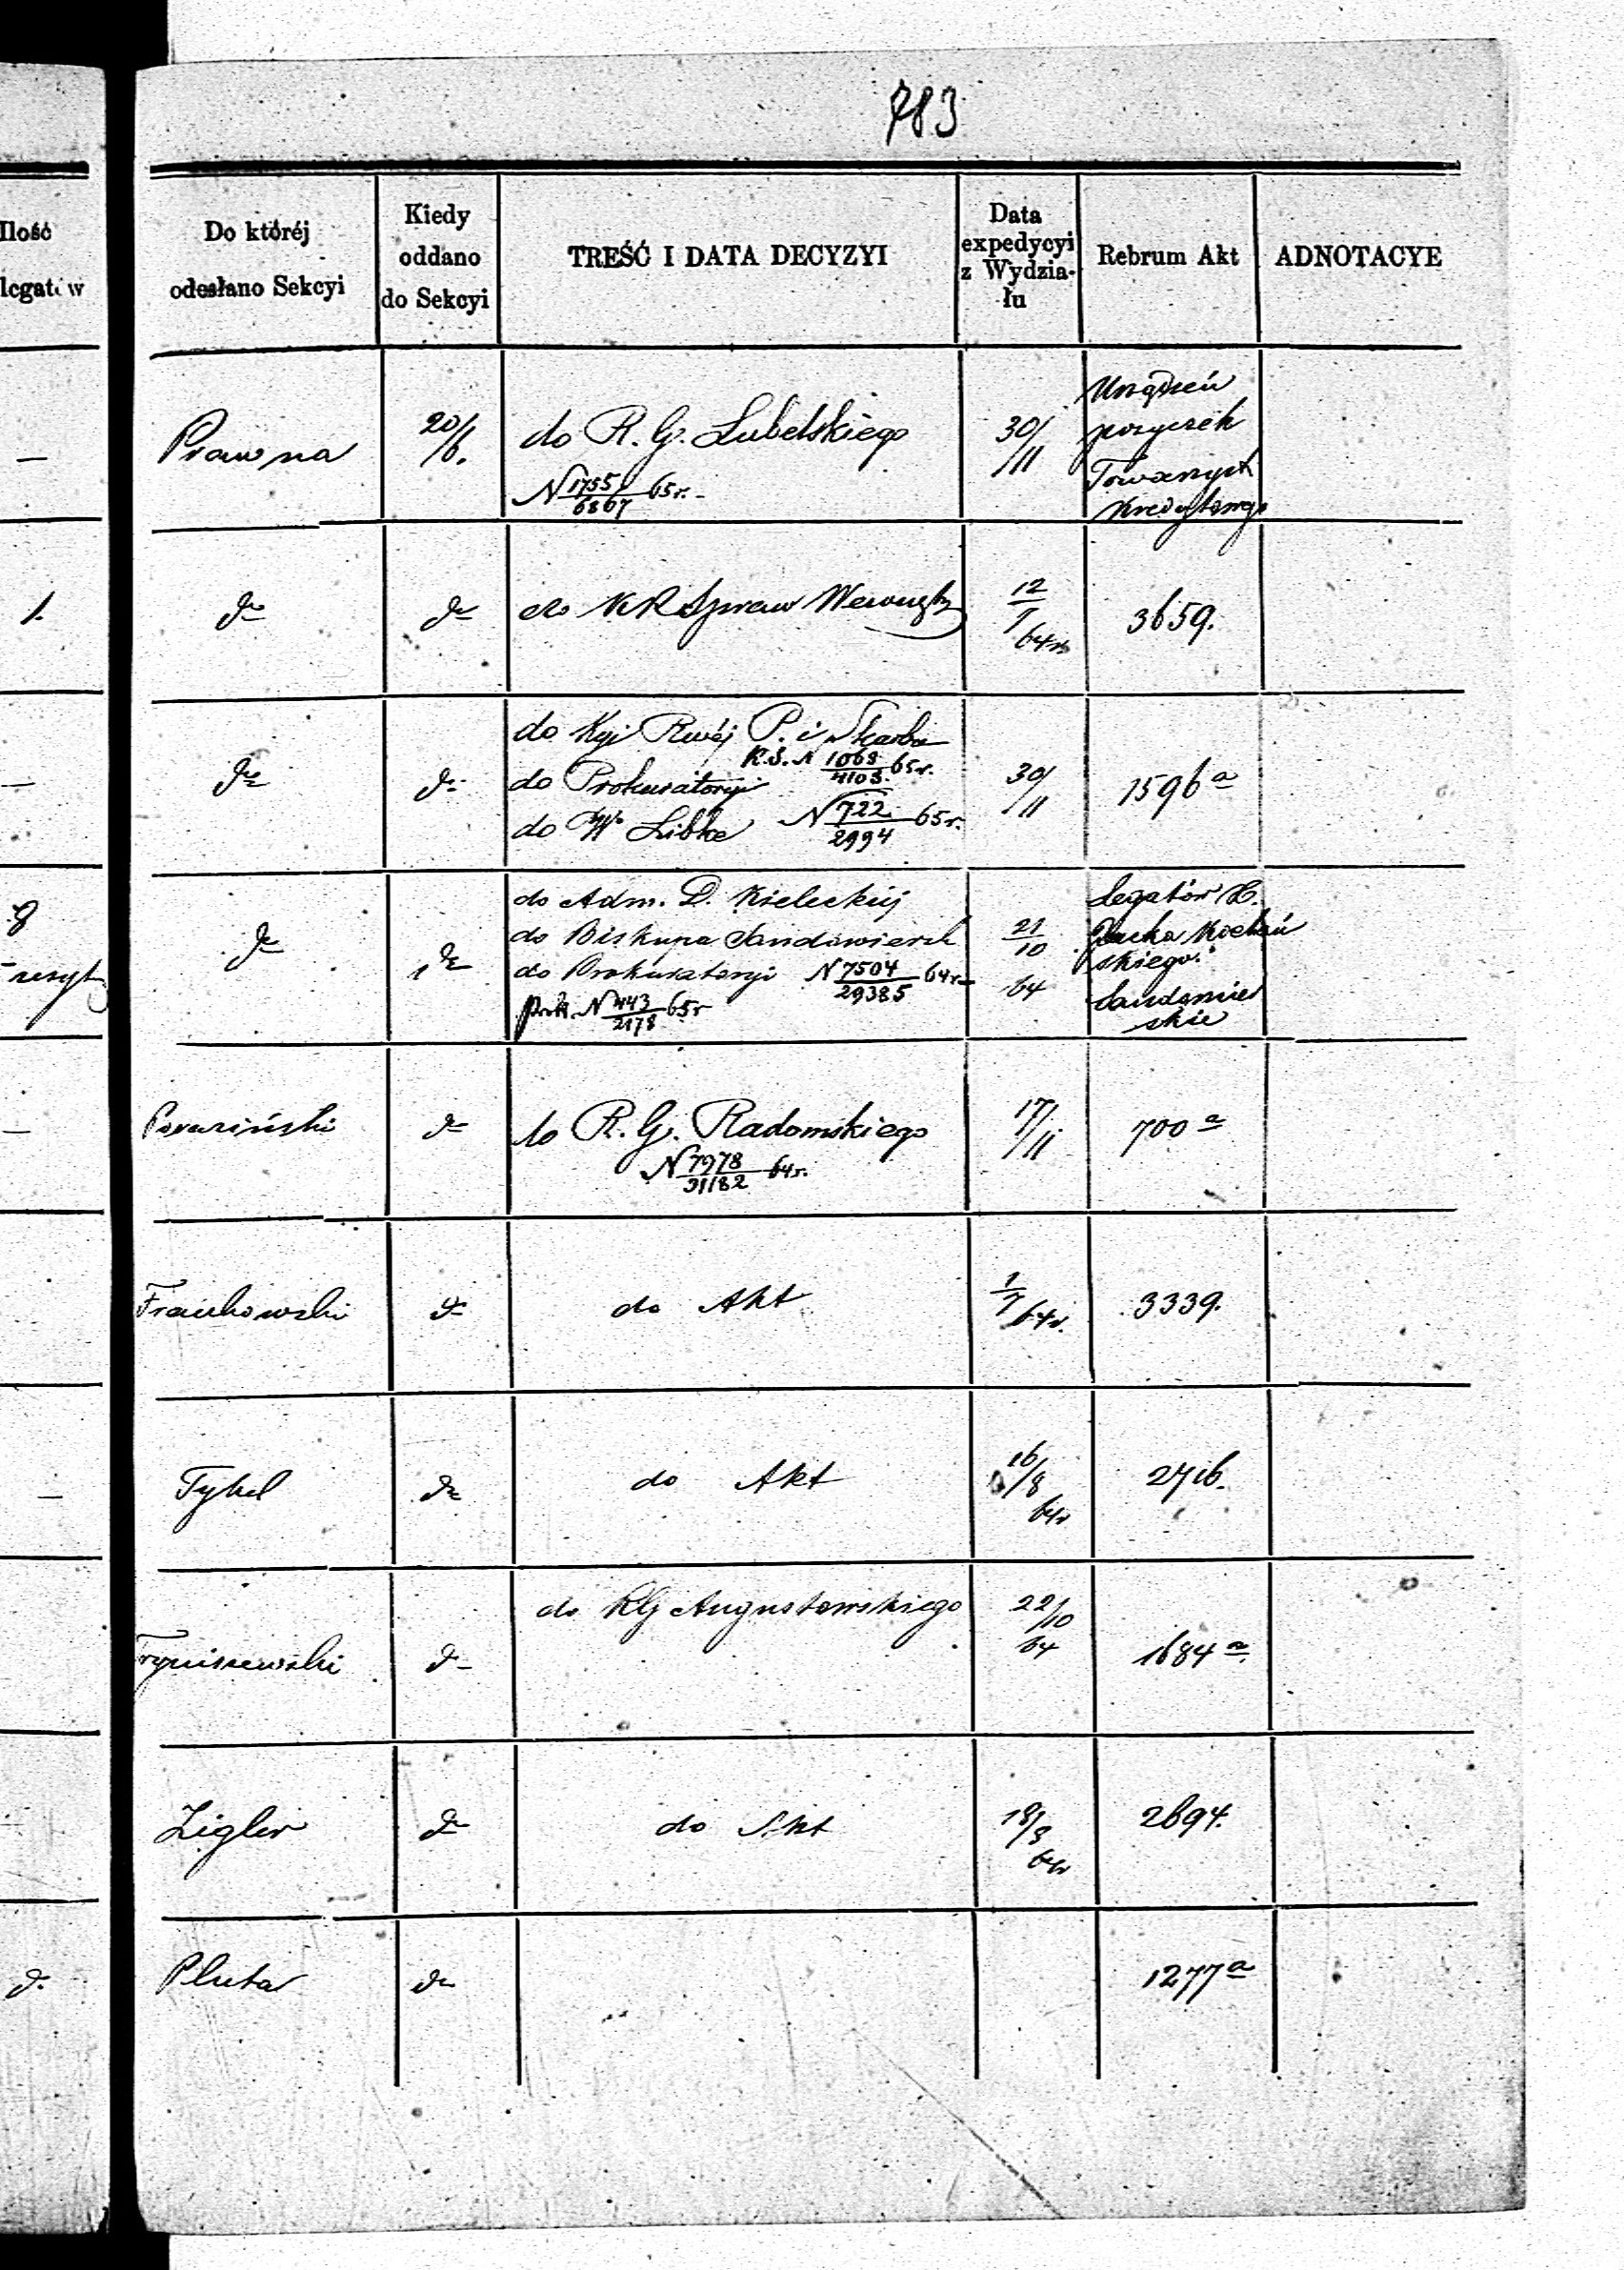 783
Ilość
legatów
Do któréj
odesłano Sekcyi
Kiedy
oddano
do Sekcyi
TREŚĆ I DATA DECYZYI
Data
expedycyi
z Wydzia-
łu
Rebrum Akt
ADNOTACYE
—
Prawna
20/6.
do R. G. Lubelskiego
N 1755/6867 65r.
30/11
Urządzeń
pożyczek
Towarzyst
Kredytowego
1.
do
do
do KR Spraw Wewnętrz
12/1 64r
3659.
—
do
do
do Kyi Rwéj P. i Skarbu
K.S. N 1068/4103. 65r.
do Prokuratoryi
do W Libke N 722/2994 65r.
30/11
1596 a
do
do
do Adm. D. Kieleckiéj
do Biskupa Sandomiersk
do Prokuratoryi N 7504/29385 64r
prok. N 443/2178 65r
21/10
64
Legatów X.
skiego.
Sandomier
skie
—
do
do R. G. Radomskiego
N 7978/31182 64r.
17/11
700 a
Frankowski
do
do Akt
1/7 64r.
3339.
—
Tykel
do
do Akt
16/8
64r
2716.
do
do RG Augustowskiego
22/10
64
1684 a
Zigler
do
do Akt
18/8
64r
2694.
d.
Pluta
do
1277 a